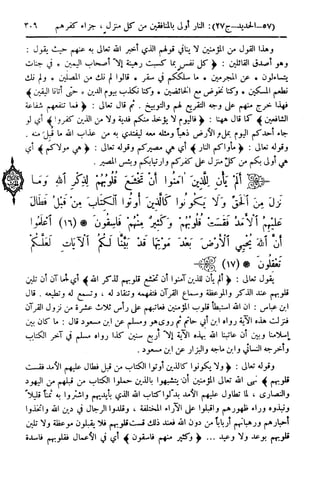 (٥٧-الحديد-ج٢٧): النار أولى بالمنافقين من كل منزل، جزاء كفرهم
٣٠٩
وهذا القول من المؤمنين لا ينافي قولهم الذي أخبر الله تعالى به عنهم حيث يقول:
وهو أصدق القائلين: ﴿ كل نفس بما كسبت رهينة إلا أصحاب اليمين * في جنات
يتساءلون * عن المجرمين * ما سلككم في سقر * قالوا لم نك من المصلين * ولم نك
نطعم المسكين * وكنا نخوض مع الخائضين * وكنا نكذب بيوم الدين * حتى أتانا اليقين ﴾
فهذا خرج منهم على وجه التقريع لهم والتوبيخ. ثم قال تعالى: ﴿ فما تنفعهم شفاعة
الشافعين ﴾ كما قال ههنا: ﴿ فاليوم لا يؤخذ منكم فدية ولا من الذين كفروا ﴾ أي لو
جاء أحدكم اليوم بملء الأرض ذهباً ومثله معه ليفتدي به من عذاب الله ما قبل منه.
وقوله تعالى: ﴿ مأواكم النار ﴾ أي هي مصيركم وقوله تعالى: ﴿ هي مولاكم ﴾ أي
هي أولى بكم من كل منزل على كفركم وارتيابكم وبئس المصير.
﴿ أَلَمْ يَأْنِ لِلَّذِينَ آمَنُوا أَن تَخْشَعَ قُلُوبُهُمْ لِذِكْرِ اللَّهِ وَمَا
نَزَلَ مِنَ الْحَقِّ وَلَا يَكُونُوا كَالَّذِينَ أُوتُوا الْكِتَابَ مِن قَبْلُ فَطَالَ
عَلَيْهِمُ الْأَمَدُ فَقَسَتْ قُلُوبُهُمْ وَكَثِيرٌ مِّنْهُمْ فَاسِقُونَ ﴾ (١٦) ﴿ اعْلَمُوا
أَنَّ اللَّهَ يُحْيِي الْأَرْضَ بَعْدَ مَوْتِهَا قَدْ بَيَّنَّا لَكُمُ الْآيَاتِ لَعَلَّكُمْ
تَعْقِلُونَ ﴾ (١٧)
يقول تعالى: ﴿ ألم يأن للذين آمنوا أن تخشع قلوبهم لذكر الله ﴾ أي أما آن أن تلين
قلوبهم عند الذكر والموعظة وسماع القرآن فتفهمه وتنقاد له، وتسمع له وتطيعه. قال
ابن عباس: إن الله استبطأ قلوب المؤمنين فعاتبهم على رأس ثلاث عشرة من نزول القرآن
فنزلت هذه الآية رواه ابن أبي حاتم ثم روى هو ومسلم عن ابن مسعود قال: ما كان بين
إسلامنا وبين أن عاتبنا الله بهذه الآية إلا أربع سنين كذا رواه مسلم في آخر الكتاب
وأخرجه النسائي وابن ماجه والبزار عن ابن مسعود.
وقوله تعالى: ﴿ ولا يكونوا كالذين أوتوا الكتاب من قبل فطال عليهم الأمد فقست
قلوبهم ﴾ نهى الله تعالى المؤمنين أن يتشبهوا بالذين حملوا الكتاب من قبلهم من اليهود
والنصارى، لما تطاول عليهم الأمد بدلوا كتاب الله الذي بأيديهم واشتروا به ثمناً قليلاً
ونبذوه وراء ظهورهم وأقبلوا على الآراء المختلفة، وقلدوا الرجال في دين الله واتخذوا
أحبارهم ورهبانهم أرباباً من دون الله فعند ذلك قست قلوبهم فلا يقبلون موعظة ولا تلين
قلوبهم بوعد ولا وعيد ... ﴿ وكثير منهم فاسقون ﴾ أي في الأعمال فقلوبهم فاسدة